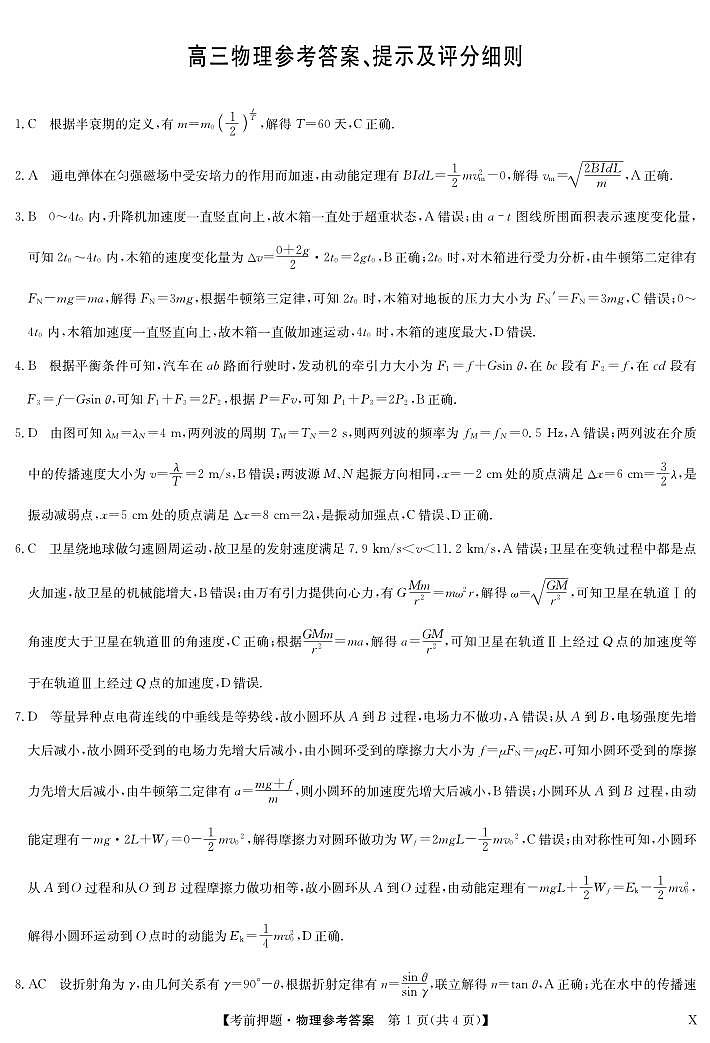 高三物理参考答案、提示及评分细则
1. C 根据半衰期的定义,有 m=m₀(1/2)^(t/T),解得 T=60 天,C 正确.
2. A 通电弹体在匀强磁场中受安培力的作用而加速,由动能定理有 BIdL=1/2 mvₘ²−0,解得 vₘ=√(2BIdL/m),A 正确.
3. B 0～4t₀ 内,升降机加速度一直竖直向上,故木箱一直处于超重状态,A 错误;由 a-t 图线所围面积表示速度变化量,
可知 2t₀～4t₀ 内,木箱的速度变化量为 Δv=(0+2g)/2·2t₀=2gt₀,B 正确;2t₀ 时,对木箱进行受力分析,由牛顿第二定律有
F_N−mg=ma,解得 F_N=3mg,根据牛顿第三定律,可知 2t₀ 时,木箱对地板的压力大小为 F_N′=F_N=3mg,C 错误;0～
4t₀ 内,木箱加速度一直竖直向上,故木箱一直做加速运动,4t₀ 时,木箱的速度最大,D 错误.
4. B 根据平衡条件可知,汽车在 ab 路面行驶时,发动机的牵引力大小为 F₁=f+Gsin θ,在 bc 段有 F₂=f,在 cd 段有
F₃=f−Gsin θ,可知 F₁+F₃=2F₂,根据 P=Fv,可知 P₁+P₃=2P₂,B 正确.
5. D 由图可知 λ_M=λ_N=4 m,两列波的周期 T_M=T_N=2 s,则两列波的频率为 f_M=f_N=0.5 Hz,A 错误;两列波在介质
中的传播速度大小为 v=λ/T=2 m/s,B 错误;两波源 M、N 起振方向相同,x=−2 cm 处的质点满足 Δx=6 cm=3/2 λ,是
振动减弱点,x=5 cm 处的质点满足 Δx=8 cm=2λ,是振动加强点,C 错误、D 正确.
6. C 卫星绕地球做匀速圆周运动,故卫星的发射速度满足 7.9 km/s<v<11.2 km/s,A 错误;卫星在变轨过程中都是点
火加速,故卫星的机械能增大,B 错误;由万有引力提供向心力,有 G Mm/r²=mω²r,解得 ω=√(GM/r²),可知卫星在轨道Ⅰ的
角速度大于卫星在轨道Ⅲ的角速度,C 正确;根据 GMm/r²=ma,解得 a=GM/r²,可知卫星在轨道Ⅱ上经过 Q 点的加速度等
于在轨道Ⅲ上经过 Q 点的加速度,D 错误.
7. D 等量异种点电荷连线的中垂线是等势线,故小圆环从 A 到 B 过程,电场力不做功,A 错误;从 A 到 B,电场强度先增
大后减小,故小圆环受到的电场力先增大后减小,由小圆环受到的摩擦力大小为 f=μF_N=μqE,可知小圆环受到的摩擦
力先增大后减小,由牛顿第二定律有 a=(mg+f)/m,则小圆环的加速度先增大后减小,B 错误;小圆环从 A 到 B 过程,由动
能定理有−mg·2L+W_f=0−1/2 mv₀²,解得摩擦力对圆环做功为 W_f=2mgL−1/2 mv₀²,C 错误;由对称性可知,小圆环
从 A 到 O 过程和从 O 到 B 过程摩擦力做功相等,故小圆环从 A 到 O 过程,由动能定理有−mgL+1/2 W_f=E_k−1/2 mv₀²,
解得小圆环运动到 O 点时的动能为 E_k=1/4 mv₀²,D 正确.
8. AC 设折射角为 γ,由几何关系有 γ=90°−θ,根据折射定律有 n=sin θ/sin γ,联立解得 n=tan θ,A 正确;光在水中的传播速
【考前押题·物理参考答案 第 1 页(共 4 页)】 X